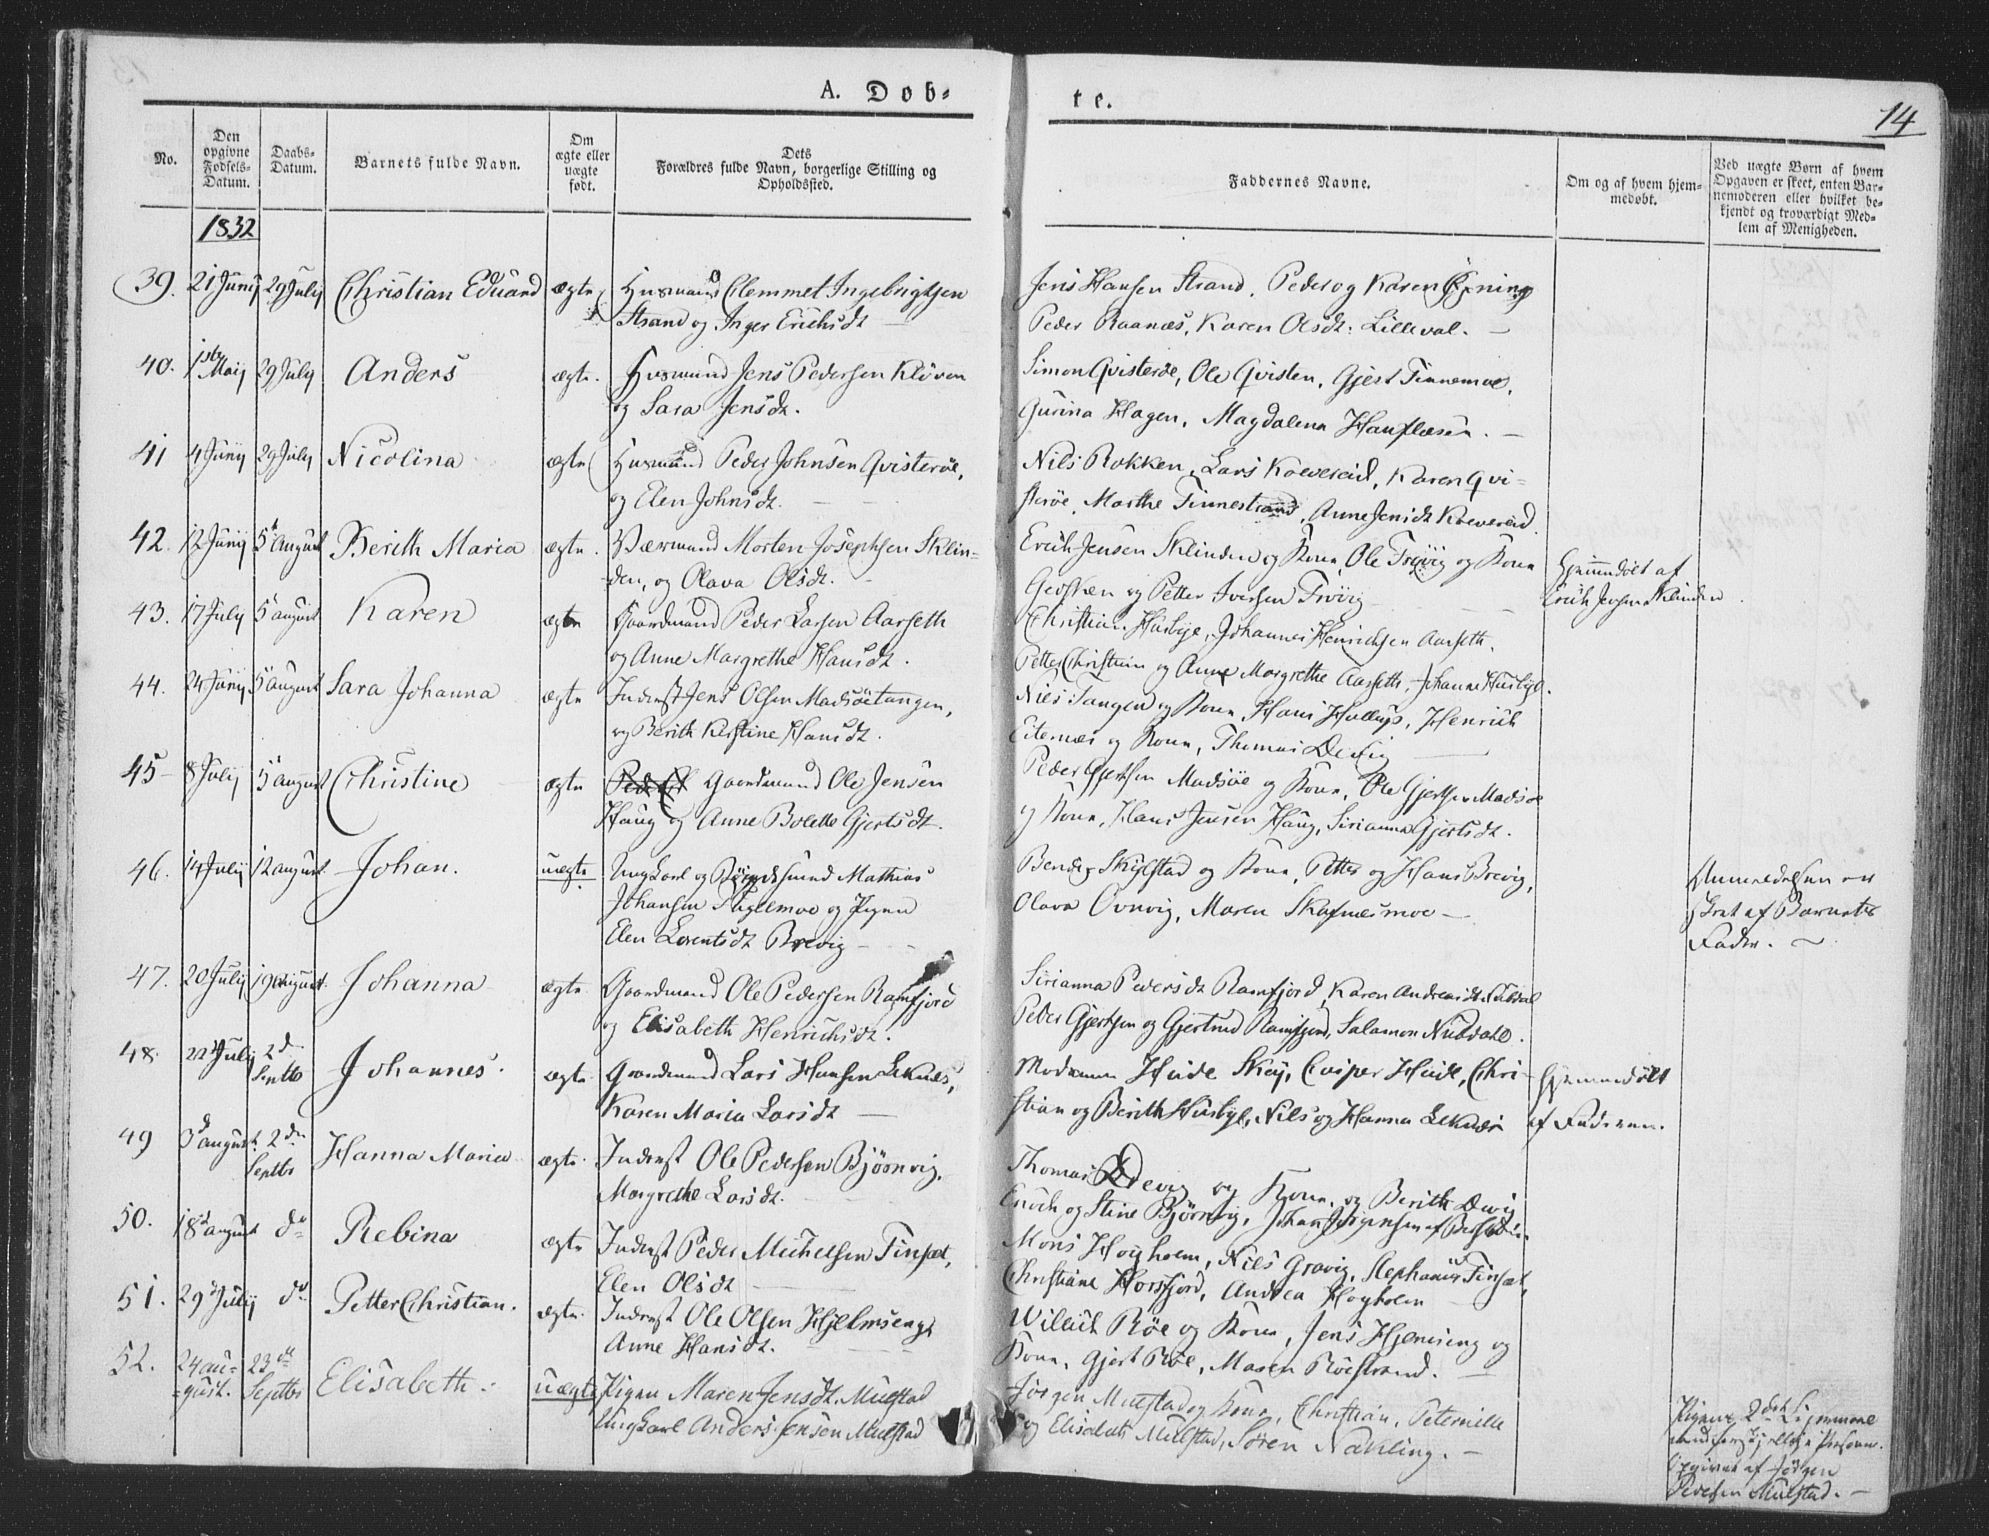 A. Døb-
te.
14
No.
Den opgivne Fødsels-Datum.
Daabs-Datum.
Barnets fulde Navn.
Om ægte eller uægte født.
Dets Forældres fulde Navn, borgerlige Stilling og Opholdssted.
Faddernes Navne.
Om og af hvem hjem-medøbt.
Ved uægte Børn af hvem Opgaven er skeet, enten Bar-nemoderen eller hvilket be-kjendt og troværdigt Med-lem af Menigheden.
1832
39. 21 Junij 29 July Christian Eduard ægte Husmand Clemmet Ingebrigtsen
Strand og Inger Erichsdt
Jens Hansen Strand, Peder og Karen
Peder Raanæs, Karen Olsdt: Lilleval.
40. 1ste Maij 29 July Anders ægte. Husmand Jens Pedersen Kløven
og Sara Jensdt.
Simon Qvisterøe, Ole Qvisten, Gjert Finnemoe,
Gurina Hagen, Magdalena
41 4 Junij 29 July Nicolina ægte Husmand Peder Johnsen Qvisterøe,
og Elen Johnsdt.
Nils Rokken, Lars Koevereid, Karen Qvi-
sterøe, Marthe Finnestrand, Anne Jensdt Koevereid
42. 12 Junij 5t August Berith Maria ægte. Morten Josephsen Sklin-
den, og Olava Olsdt.
Erich Jensen Sklinden og Kone, Ole Frøvig og Kone
og Petter Iversen Frøvig
Hjemmedøbt af
Erich Jensen Sklinden
43. 17 July 5 august Karen ægte Gaardmand Peder Larsen Aarseth
og Anne Margrethe Hansdt.
Christian Husbye, Johannes Henrichsen Aarseth.
Petter Christian og Anne Margrethe Aarseth, Johanne Husbye.
44. 24 Junij 5 august Sara Johanna ægte Inderst Jens Olsen Madsøetangen,
og Berith Kirstine Hansdt.
Nils Tangen og Kone, Hans, Henrich
Eiternæs og Kone, Thomas Devig
45 8 July 5 august Christine ægte Gaardmand Ole Jensen
Haug og Anne Bolette Gjertsdt.
Peder Gjertsen Madsøe og Kone, Ole Gjertsen Madsøe
og Kone, Hans Jensen Haug, Sirianna Gjertsdt.
46. 14 July 12 august Johan. uægte Ungkarl og Mathias
Johansen og Pigen
Elen Lorentsdt Brevig
og Kone, Petter og Hans Brevig,
Olava Ovnvig, Maren Skafnesmoe
Anmeldelsen er
skeet af Barnets
Fader.
47. 20 July 19 august. Johanna ægte Gaardmand Ole Pedersen Ramfjord
og Elisabeth Henrichsdt.
Sirianna Pedersdt Ramfjord, Karen Andreasdt
Peder Gjertsen og Gjertrud Ramfjord, Salamon Nubdahl.
48. July 2d Septbr Johannes. ægte Gaardmand Lars Hansen Leknæs,
Karen Maria Larsdt
Madamme Heide Skey, Casper Heide, Chri-
stian og Berith Husbye, Nils og Hanna Leknæs
Hjemmedøbt
af Faderen.
49 3d august 2den Septbr Hanna Maria ægte Inderst Ole Pedersen Bjørnvig,
Margrethe Larsdt.
Thomas Devig og Kone, og Berith Devig
Erich og Stine Bjørnvig, Johan Jørgensen
50. 18d august do Rebina ægte Inderst Peder Michelsen Finsæt,
Elen Olsdt
Mons Høyholm, Nils Gravig, Stephanus Finsæt,
Christiane Horsfjord, Andrea Høyholm
51. 29d July do Petter Christian. ægte Inderst Ole Olsen Hjelmseng,
Anne Hansdt.
Willich Røe og Kone, Jens og
Kone, Gjert Røe, Maren Røestrand.
52. 24 au-
gust. 23de Septbr Elisabeth. uægte Pigen Maren Jensdt. Mulstad
Ungkarl Anders Jensen Mulstad
Jørgen Mulstad og Kone, Christian, Peternille
og Elisabeth Mulstad, Søren Nakling.
Pigens 2det Leiermaal
med forskjellige Personer.
Opgivet af Jørgen
Pedersen Mulstad.